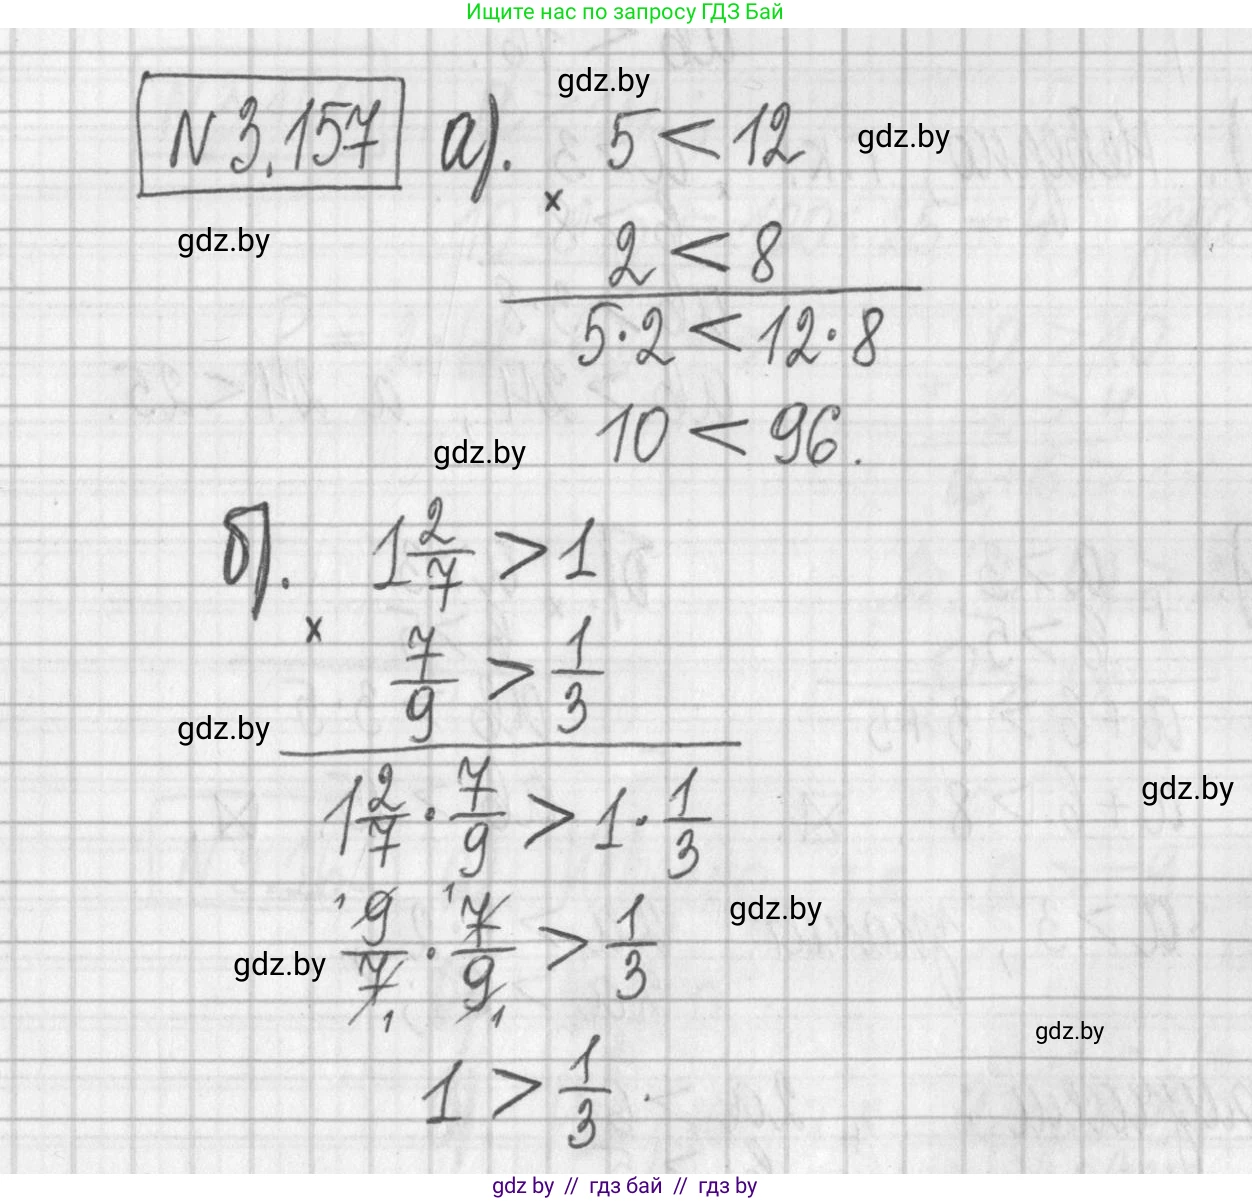 Ищите нас по запросу ГДЗ Бай
gdz.by
N 3.157 а). 5 < 12 gdz.by
×
gdz.by 2 < 8
5·2 < 12·8
10 < 96.
gdz.by
б). 1 2/7 > 1
×
7/9 > 1/3
gdz.by
1 2/7 · 7/9 > 1 · 1/3
gdz.by
gdz.by
9/7 · 7/9 > 1/3
1 1 1 1
gdz.by
gdz.by
1 > 1/3.
gdz by // гдз бай // гдз by